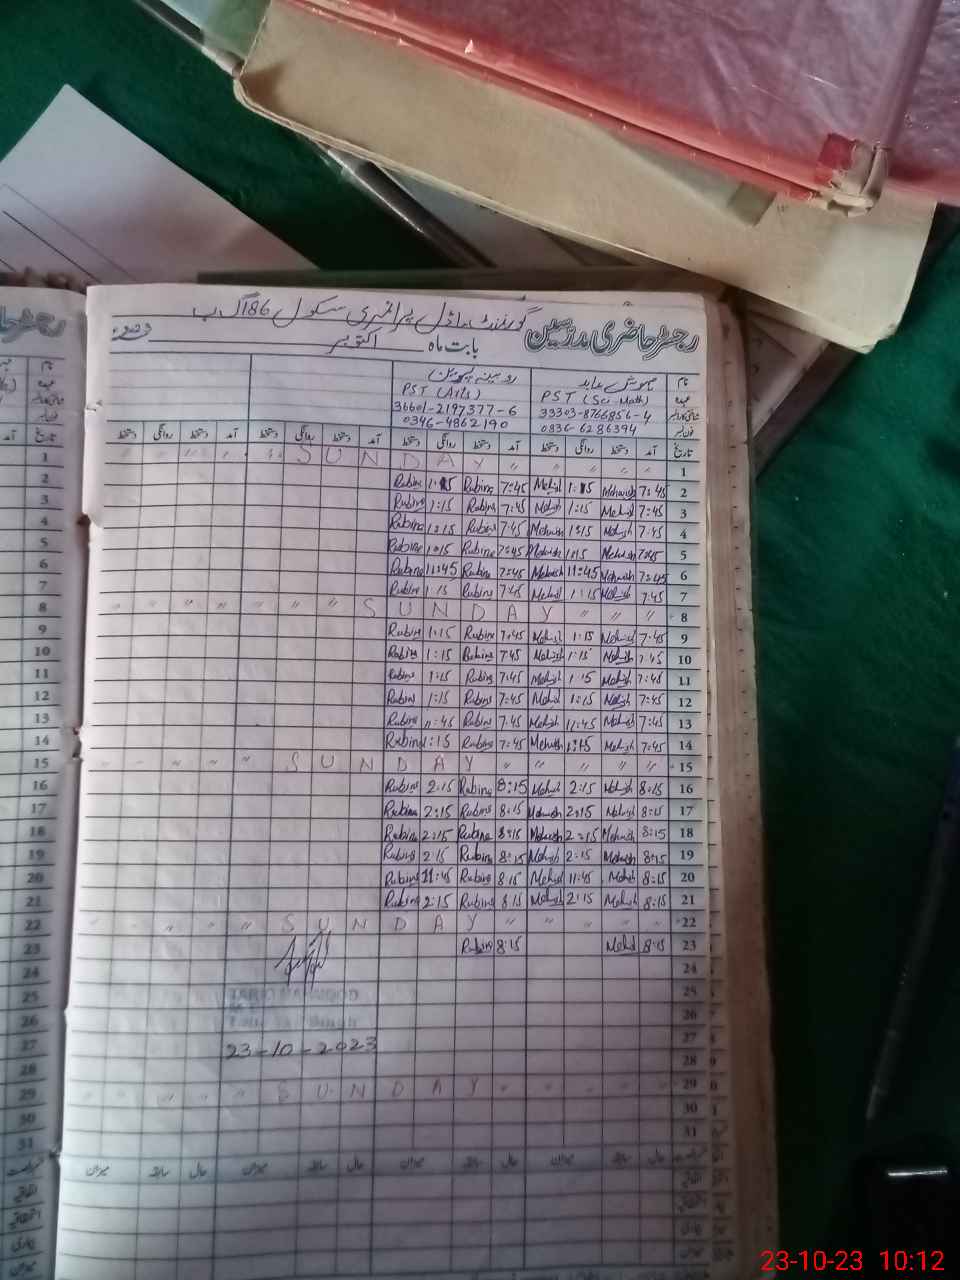 رجسٹر حاضری مدرسین گورنمنٹ ماڈل پرائمری سکول 86 گ ب
بابت ماہ اکتوبر
نام مہوش عابد روبینہ
عہدہ PST (Sci-Math) PST (Arts)
33303-8766856-4 36601-2197377-6
فون نمبر 0336-6286394 0346-4862190
تاریخ آمد دستخط روانگی دستخط آمد دستخط روانگی دستخط آمد دستخط روانگی دستخط آمد دستخط روانگی دستخط
1 SUNDAY
Rubina 1:15 Rubina 7:45 Mehwish 1:15 Mehwish 7:45 2
Rubina 1:15 Rubina 7:45 Mehwish 1:15 Mehwish 7:45 3
Rubina 1:15 Rubina 7:45 Mehwish 1:15 Mehwish 7:45 4
Rubina 1:15 Rubina 7:45 Mehwish 1:15 Mehwish 7:45 5
Rubina 11:45 Rubina 7:45 Mehwish 11:45 Mehwish 7:45 6
Rubina 1:15 Rubina 7:45 Mehwish 1:15 Mehwish 7:45 7
8 SUNDAY 8
Rubina 1:15 Rubina 7:45 Mehwish 1:15 Mehwish 7:45 9
Rubina 1:15 Rubina 7:45 Mehwish 1:15 Mehwish 7:45 10
Rubina 1:15 Rubina 7:45 Mehwish 1:15 Mehwish 7:45 11
Rubina 1:15 Rubina 7:45 Mehwish 1:15 Mehwish 7:45 12
Rubina 11:45 Rubina 7:45 Mehwish 11:45 Mehwish 7:45 13
Rubina 1:15 Rubina 7:45 Mehwish 1:15 Mehwish 7:45 14
15 SUNDAY 15
Rubina 2:15 Rubina 8:15 Mehwish 2:15 Mehwish 8:15 16
Rubina 2:15 Rubina 8:15 Mehwish 2:15 Mehwish 8:15 17
Rubina 2:15 Rubina 8:15 Mehwish 2:15 Mehwish 8:15 18
Rubina 2:15 Rubina 8:15 Mehwish 2:15 Mehwish 8:15 19
Rubina 11:45 Rubina 8:15 Mehwish 11:45 Mehwish 8:15 20
Rubina 2:15 Rubina 8:15 Mehwish 2:15 Mehwish 8:15 21
22 SUNDAY 22
Rubina 8:15 Mehwish 8:15 23
24
25
26
23-10-2023 27
28
29 SUNDAY 29
30
31
حال سابقہ میزان حال سابقہ میزان حال سابقہ میزان
اتفاقیہ
میزان
23-10-23 10:12